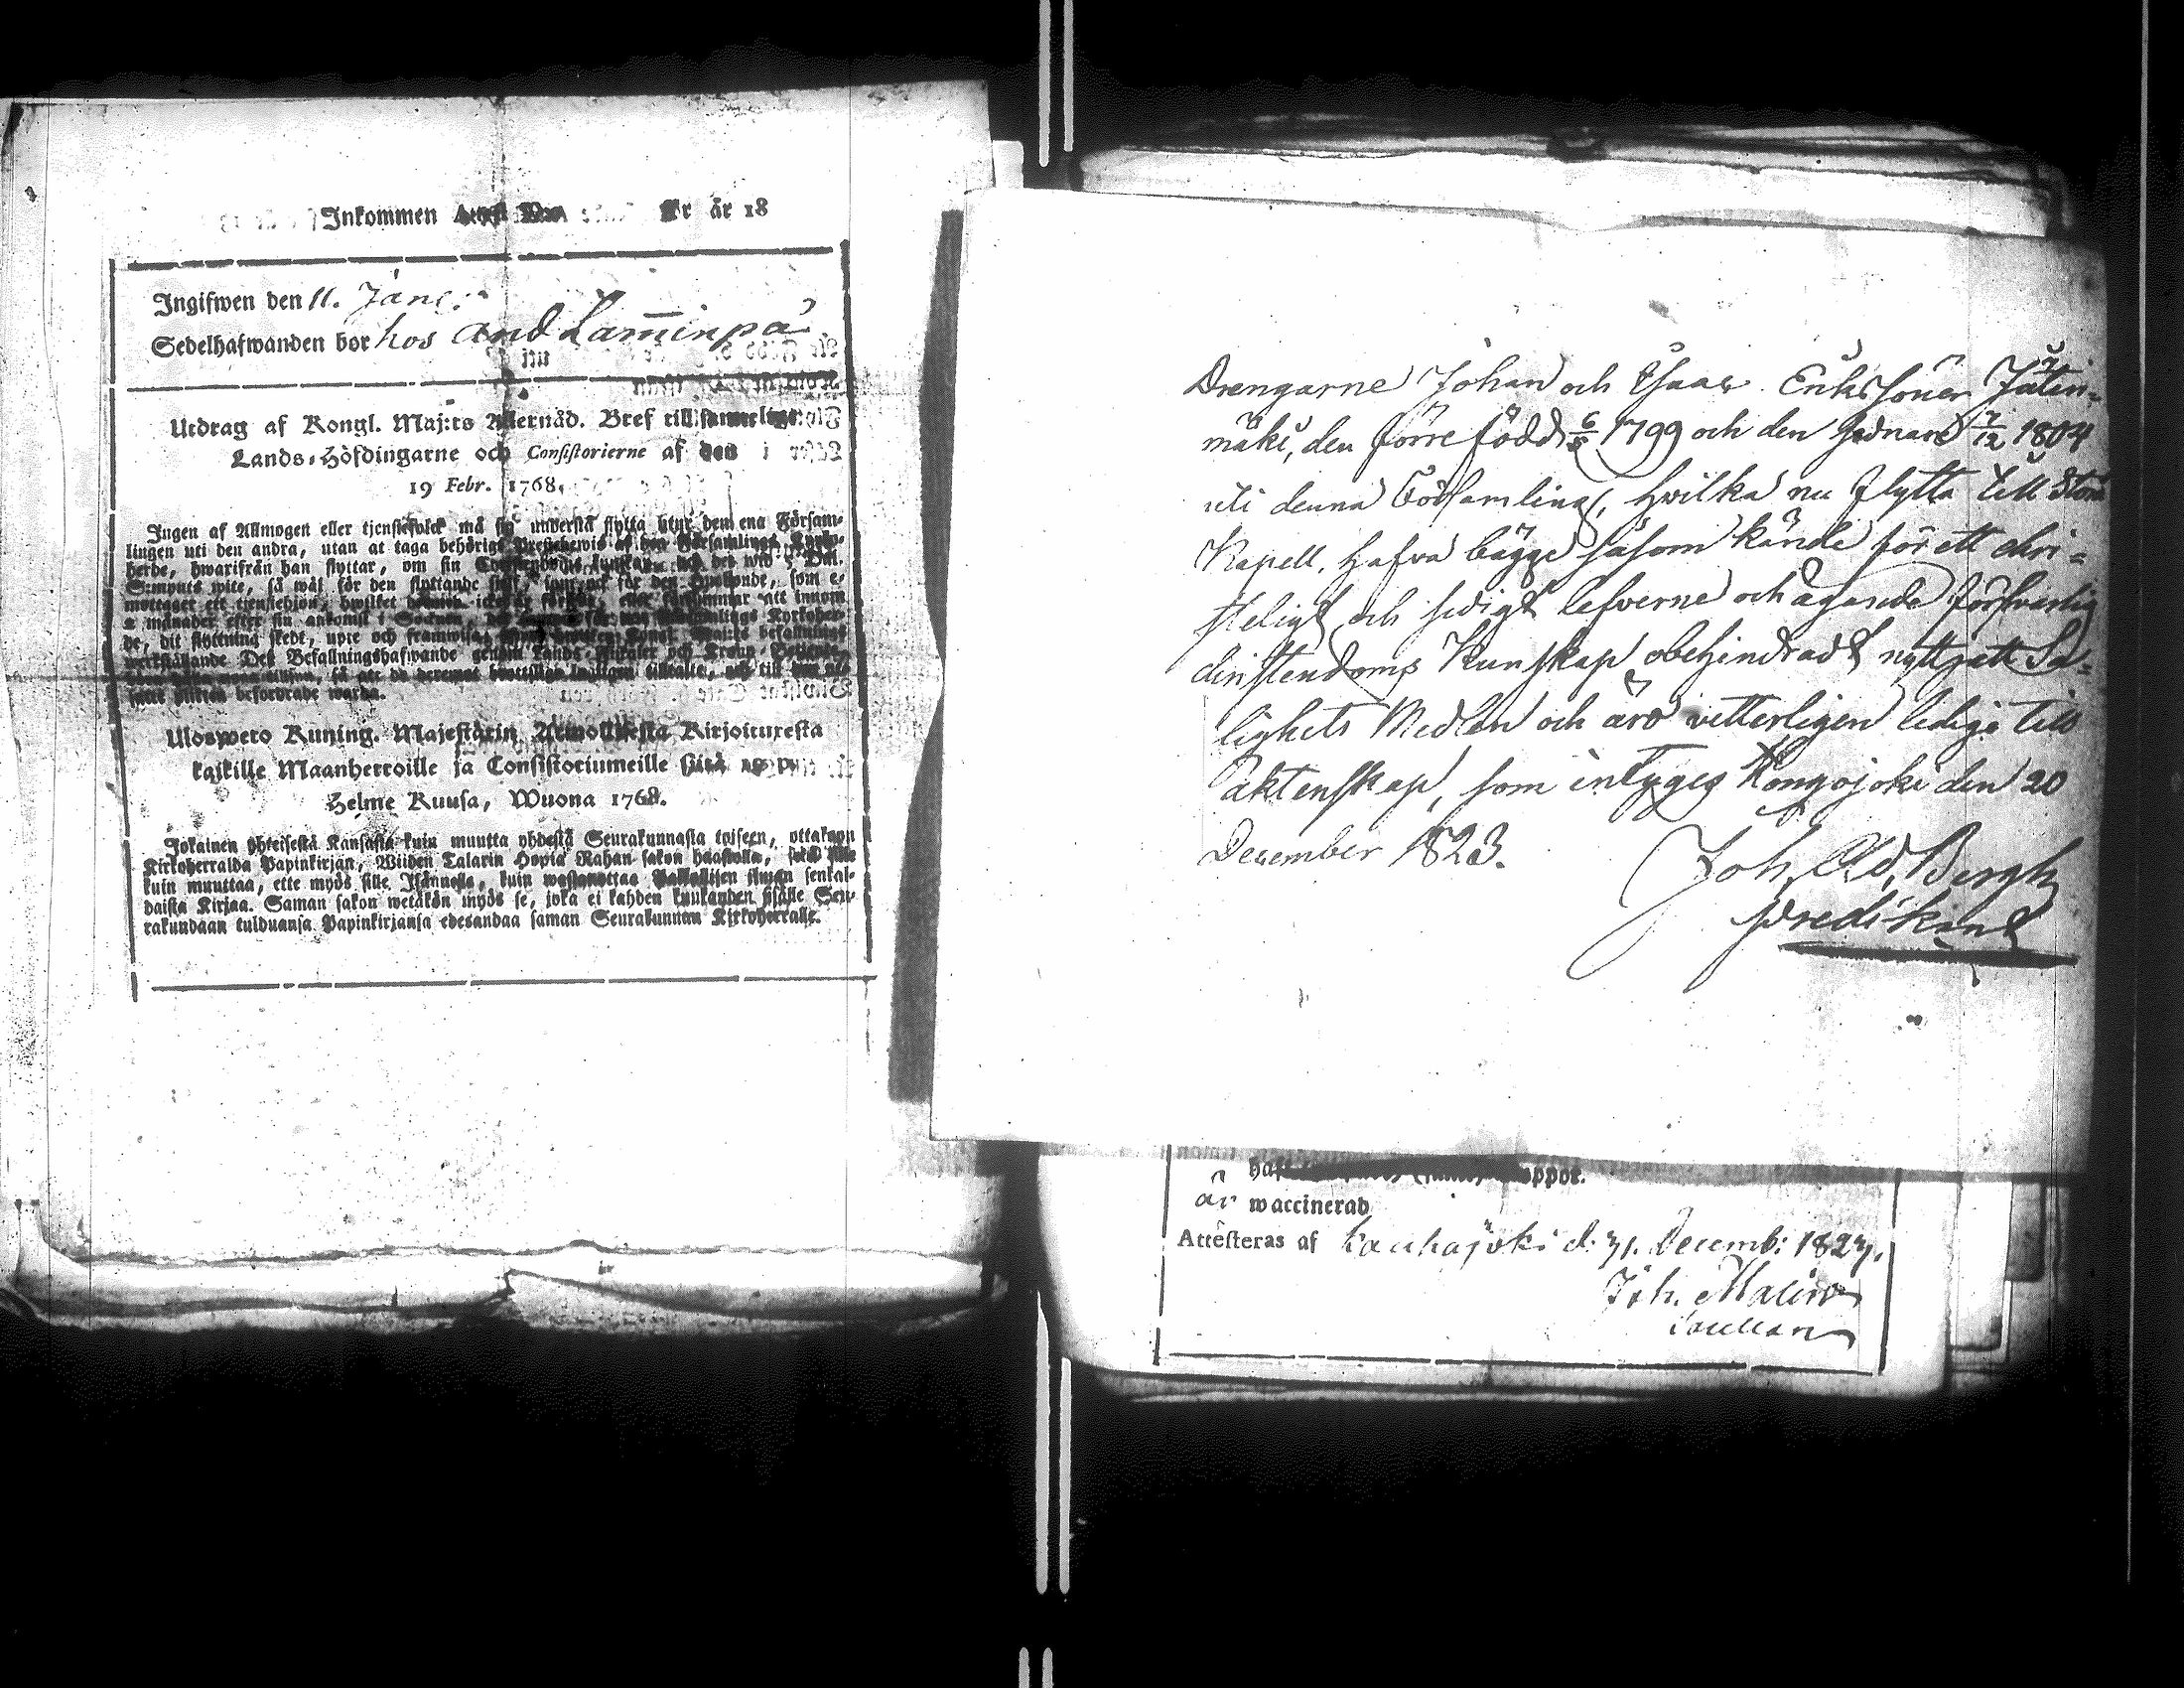 Inkommen År är 18
Ingifwen den 11. Jan:
Sedelhafwanden bor hos And Lam̄inpä
Utdrag af Kongl. Maj:ts Allernåd. Bref till samtelige
Lands-Höfdingarne och Consistorierne af den
19 Febr. 1768.
Ingen af Allmogen eller tjenstefolck må sig understå flytta utur den ena Försam-
lingen uti den andra, utan at taga behörigt Prestebewis af den Församlings Kyrko-
herde, hwarifrån han flyttar, om sin Christendoms kunskap, och det wid 5 Dal.
S:mynts wite, så wäl för den flyttande sielf, som ock för den Husbonde, som e-
mottager ett tjenstehjon, hwilket icke är försedt, eller försummar att innom
2 månader efter sin ankomst i Socknen, Församlings Kyrkoher-
de, dit flyttning skedt, upte och framwisa Kongl. Maj:ts befallnings
werkställande Des Befallningshafwande genom Lands-Fiscaler och Crono-Betiente,
befordrade warda.
Uloswero Kuning. Majestätin Armollisesta Kirjoituxesta
kaikille Maanherroille ja Consistoriumeille siitä 19 p.
Helme Kuusa, Wuona 1768.
Jokainen yhteisestä Kansasta kuin muutta yhdestä Seurakunnasta toiseen, ottakoon
Kirkoherralda Papinkirjan, Wiiden Talarin Hopia Rahan sakon haastolla, sekä sille
kuin muuttaa, ette myös sille Isännelle, kuin wastanottaa Palkollisen ilman senkal-
daista Kirjaa. Saman sakon wetäkön myös se, joka ei kahden kuukauden sisälle Seu-
rakundaan tulduansa Papinkirjansa edesandaa saman Seurakunnan Kirkoherralle.
Drengarne Johan och Isaac Eriks söner Jäten-
mäki, den förre född 6/5 1799 och den sednare 7/12 1804
uti denna Församling, hwilka nu flytta till Storå
Kapell, hafva bägge såsom kände för ett chri-
steligt och sedigt lefverne och ägande försvarlig
christendoms Kunskap obehindradt nyttjatt Sa-
lighets Medlen och äro vitterligen lediga till
äktenskap, som intygas Kongojoki den 20
December 1823.
Joh. Ad. Bergh
predikant
haft koppor.
är waccinerad
Attesteras af Kauhajoki d: 31. Decemb: 1823.
Joh.